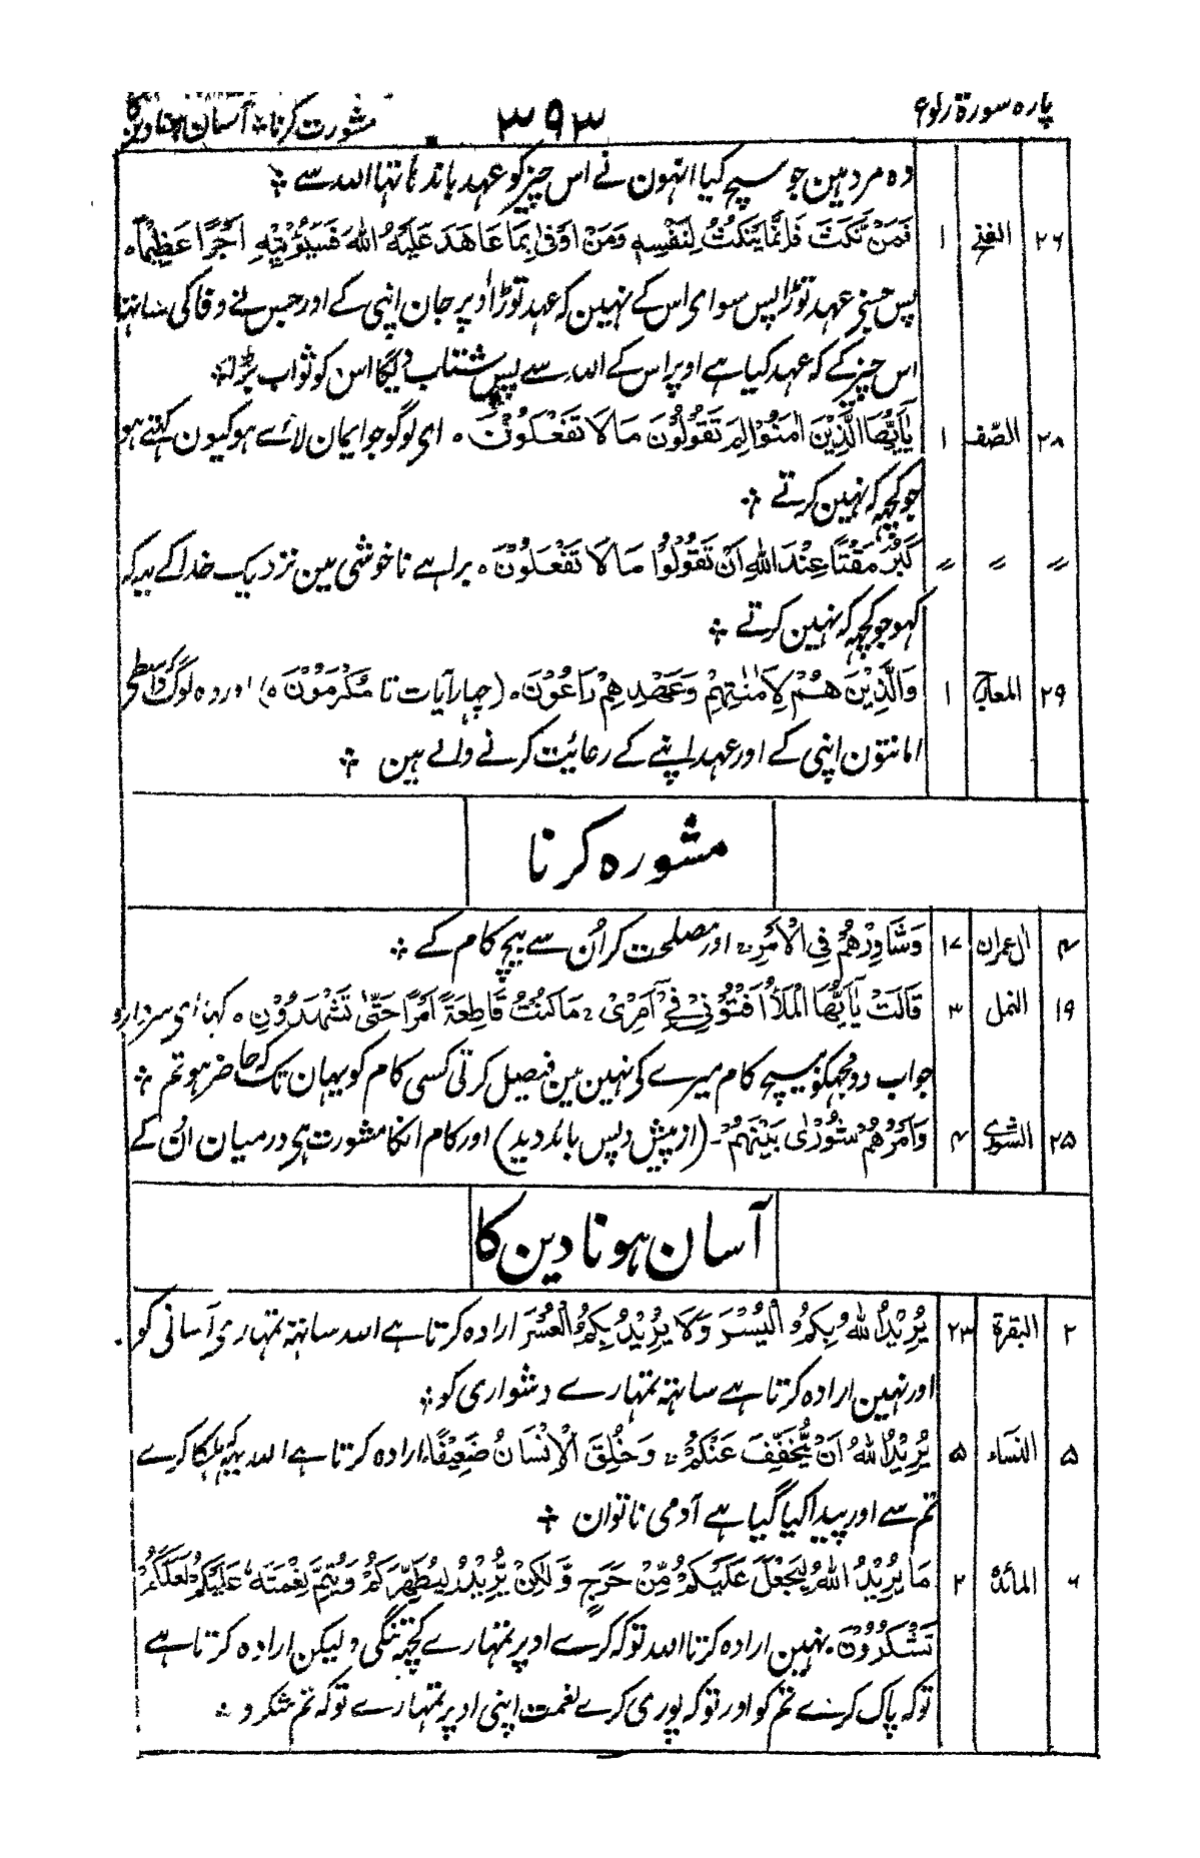 پارہ سورۃ رکوع ۳۹۳ مشورت کرنا ۔ آسان ہونا دین کا
وہ مرد ہین جو سچ کیا انہون نے اس چیز کو عہد باندہا تہا اللہ سے ÷
۲۶ الفتح ۱ فَمَنْ نَّكَثَ فَاِنَّمَا يَنْكُثُ لِنَفْسِهٖ وَمَنْ اَوْفٰى بِمَا عَاهَدَ عَلَيْهُ اللّٰهَ فَسَيُؤْتِيْهِ اَجْرًا عَظِيْمًا ہ
پس جسنے عہد توڑا پس سوای اس کے نہین کہ عہد توڑا اوپر جان اپنی کے اور جس نے وفا کی ساتہہ
اس چیز کے کہ عہد کیا ہے اوپر اس کے اللہ سے پس شتاب دیگا اس کو ثواب بڑا ÷
۲۸ الصّف ۱ يٰۤاَيُّهَا الَّذِيْنَ اٰمَنُوْا لِمَ تَقُوْلُوْنَ مَا لَا تَفْعَلُوْنَ ہ ای لوگو جو ایمان لائے ہو کیون کہتے ہو
جو کچہہ کہ نہین کرتے ÷
〃 〃 〃 كَبُرَ مَقْتًا عِنْدَ اللّٰهِ اَنْ تَقُوْلُوْا مَا لَا تَفْعَلُوْنَ ہ برا ہے ناخوشی مین نزدیک خدا کے یہ کہ
کہو جو کچہہ کہ نہین کرتے ÷
۲۹ المعارج ۱ وَالَّذِيْنَ هُمْ لِاَمٰنٰتِهِمْ وَعَهْدِهِمْ رَاعُوْنَ ہ (چہار آیات تا مُّكْرَمُوْنَ ہ) اور وہ لوگ کہ واسطے
امانتون اپنی کے اور عہد اپنے کے رعائیت کرنے والے ہین ÷
مشورہ کرنا
۴ اٰل عمران ۱۷ وَشَاوِرْهُمْ فِي الْاَمْرِ ۔ اور مصلحت کر اُن سے بیچ کام کے ÷
۱۹ النمل ۳ قَالَتْ يٰۤاَيُّهَا الْمَلَؤُا اَفْتُوْنِيْ فِيْۤ اَمْرِيْ ۔ مَا كُنْتُ قَاطِعَةً اَمْرًا حَتّٰى تَشْهَدُوْنِ ہ کہا ای سردارو
جواب دو مجہکو بیچ کام میرے کی نہین مین فیصل کرتی کسی کام کو یہان تک کہ حاضر ہو تم ÷
۲۵ الشوریٰ ۴ وَاَمْرُهُمْ شُوْرٰى بَيْنَهُمْ ۔ (از پیش و پس باید دید) اور کام انکا مشورت ہی درمیان اُن کے
آسان ہونا دین کا
۲ البقرۃ ۲۳ يُرِيْدُ اللّٰهُ بِكُمُ الْيُسْرَ وَلَا يُرِيْدُ بِكُمُ الْعُسْرَ ارادہ کرتا ہے اللہ ساتہہ تمہاری آسانی کو ۔
اور نہین ارادہ کرتا ہے ساتہہ تمہارے دشواری کو ÷
۵ النساء ۵ يُرِيْدُ اللّٰهُ اَنْ يُّخَفِّفَ عَنْكُمْ ۔ وَخُلِقَ الْاِنْسَانُ ضَعِيْفًا ارادہ کرتا ہے اللہ یہ کہ ہلکا کرے
تم سے اور پیدا کیا گیا ہے آدمی ناتوان ÷
۶ المائدہ ۲ مَا يُرِيْدُ اللّٰهُ لِيَجْعَلَ عَلَيْكُمْ مِّنْ حَرَجٍ وَّلٰكِنْ يُّرِيْدُ لِيُطَهِّرَكُمْ وَلِيُتِمَّ نِعْمَتَهٗ عَلَيْكُمْ لَعَلَّكُمْ
تَشْكُرُوْنَ ۔ نہین ارادہ کرتا اللہ توکہ کرے اوپر تمہارے کچہہ تنگی ولیکن ارادہ کرتا ہے
توکہ پاک کرے تم کو اور توکہ پوری کرے نعمت اپنی اوپر تمہارے توکہ تم شکر و ÷